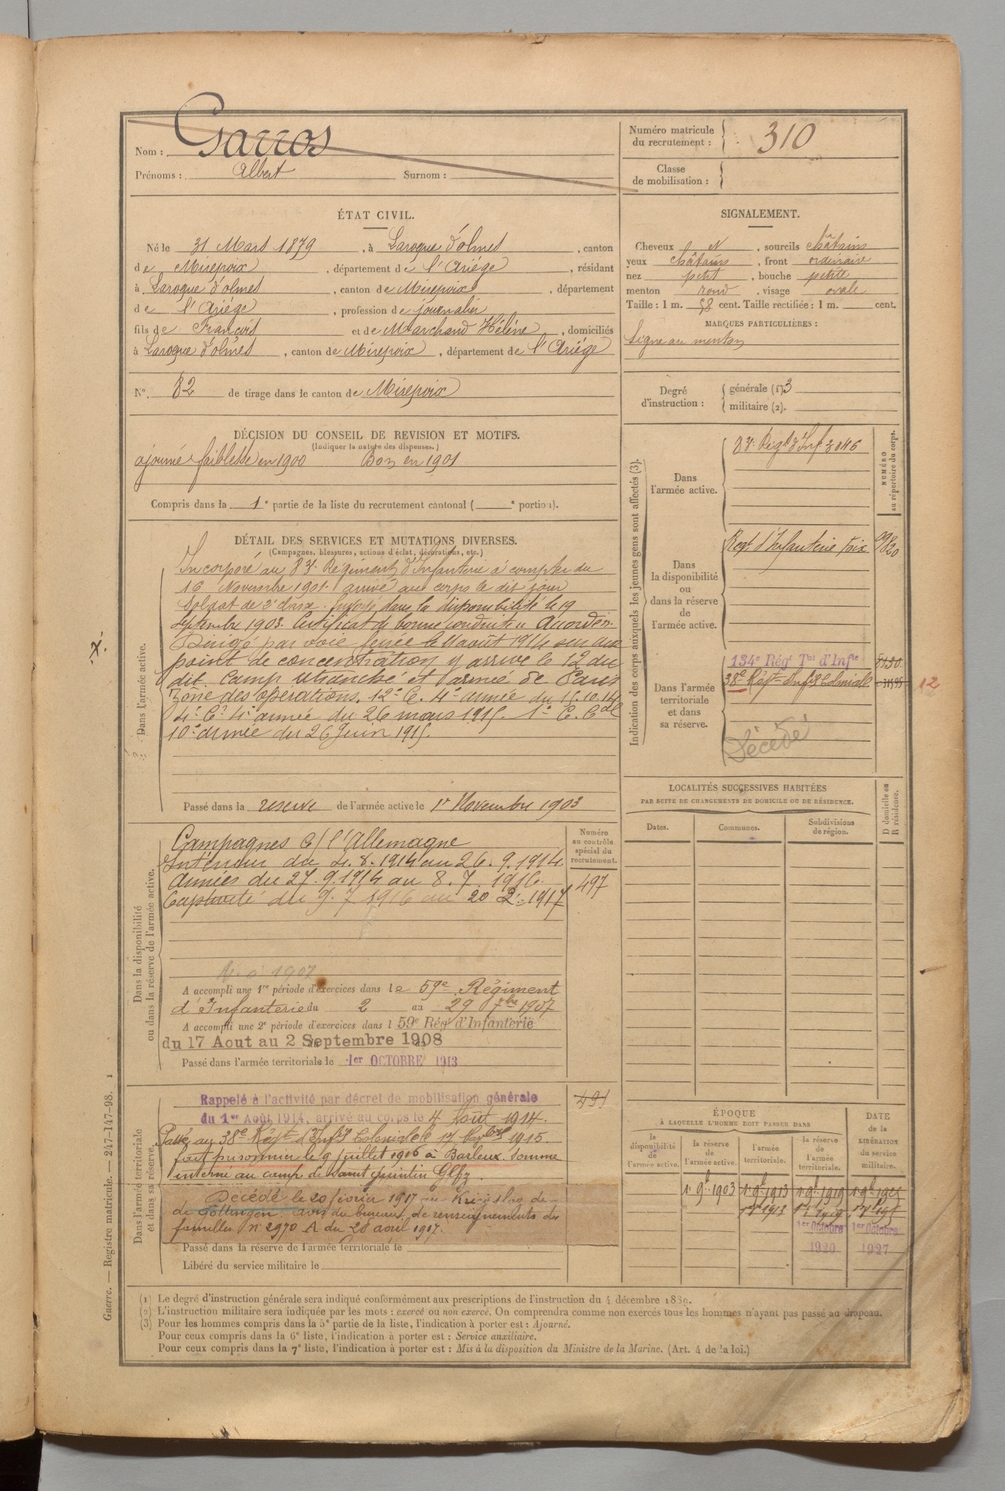 Nom : Garros
Prénoms : Albert Surnom :
Numéro matricule du recrutement : 310
Classe de mobilisation :
ÉTAT CIVIL.
Né le 31 Mars 1879, à Laroque d'olmes, canton
de Mirepoix, département de l'Ariége, résidant
à Laroque d'olmes, canton de Mirepoix, département
de l'Ariége, profession de journalier
fils de François et de Marchand Hélène, domiciliés
à Laroque d'olmes, canton de Mirepoix, département de l'Ariége
N° 82 de tirage dans le canton de Mirepoix
SIGNALEMENT.
Cheveux , sourcils châtains
yeux châtains, front ordinaire
nez petit, bouche petite
menton rond, visage ovale
Taille : 1 m. 58 cent. Taille rectifiée : 1 m. cent.
MARQUES PARTICULIÈRES :
Signe au menton
Degré d'instruction : générale (1) 3
militaire (2).
DÉCISION DU CONSEIL DE REVISION ET MOTIFS.
(Indiquer la nature des dispenses.)
ajourné faiblesse en 1900 Bon en 1901
Compris dans la 1e partie de la liste du recrutement cantonal ( e portion).
DÉTAIL DES SERVICES ET MUTATIONS DIVERSES.
(Campagnes, blessures, actions d'éclat, décorations, etc.)
Dans l'armée active.
Incorporé au 83e Régiment d'Infanterie à compter du
16 Novembre 1901 arrivé au corps le dit jour
Soldat de 2e classe dans la disponibilité le 19
septembre 1903. Certificat de bonne conduite "Accordé".
Dirigé par voie ferrée le 11 août 1914 sur un
point de concentration y arrive le 12 du
dit. Camp retranché et armée de Paris
Zone des opérations. 12e C. 4e armée du 16.10.14
4e C. 4e armée du 26 mars 1915. 1er C. Cal
10e armée du 26 Juin 1915.
Passé dans la réserve de l'armée active le 1er Novembre 1903
Dans la disponibilité ou dans la réserve de l'armée active.
Numéro au contrôle spécial du recrutement.
497
Campagnes c/ l'Allemagne
Intérieur du 4.8.1914 au 26.9.1914
Armées du 27.9.1914 au 8.7.1916.
Captivité du 9.7.1916 au 20.2.1917
A accompli une 1re période d'exercices dans le 59e Régiment
d'Infanterie du 2 au 29 7bre 1907
A accompli une 2e période d'exercices dans l 59e Rég d'Infanterie
du 17 Aout au 2 Septembre 1908
Passé dans l'armée territoriale le 1er OCTOBRE 1913
Dans l'armée territoriale et dans sa réserve.
Rappelé à l'activité par décret de mobilisation générale
du 1er Août 1914, arrivé au corps le 4 Août 1914.
Passé au 38e Régt d'Inf3 Coloniale le 1915.
fait prisonnier le 9 juillet 1916 à Barleux Somme
interné au camp de Saint quintin
Décédé le 20 février 1917 au
de Gottingen avis du bureau de renseignements des
familles N° 2970 A du 28 août 1917.
Passé dans la réserve de l'armée territoriale le
Libéré du service militaire le
Indication des corps auxquels les jeunes gens sont affectés (3).
NUMÉRO au répertoire du corps.
Dans l'armée active.
83e Régt d'Inf 3046
Dans la disponibilité ou dans la réserve de l'armée active.
Régt d'Infanterie Foix
Dans l'armée territoriale et dans sa réserve.
134e Régt Tal d'Infie
38e Régt Inf3 Coloniale
12
Décédé
LOCALITÉS SUCCESSIVES HABITÉES
PAR SUITE DE CHANGEMENTS DE DOMICILE OU DE RÉSIDENCE.
Dates. Communes. Subdivisions de région.
D domicile ou R résidence.
ÉPOQUE
À LAQUELLE L'HOMME DOIT PASSER DANS
la disponibilité de l'armée active.
la réserve de l'armée active.
l'armée territoriale.
la réserve de l'armée territoriale.
DATE de la LIBÉRATION du service militaire.
1er Octobre 1920
1er Octobre 1927
(1) Le degré d'instruction générale sera indiqué conformément aux prescriptions de l'instruction du 4 décembre 1889.
(2) L'instruction militaire sera indiquée par les mots : exercé ou non exercé. On comprendra comme non exercés tous les hommes n'ayant pas passé au drapeau.
(3) Pour les hommes compris dans la 5e partie de la liste, l'indication à porter est : Ajourné.
Pour ceux compris dans la 6e liste, l'indication à porter est : Service auxiliaire.
Pour ceux compris dans la 7e liste, l'indication à porter est : Mis à la disposition du Ministre de la Marine. (Art. 4 de la loi.)
Guerre. — Registre matricule. — 247-147-98.